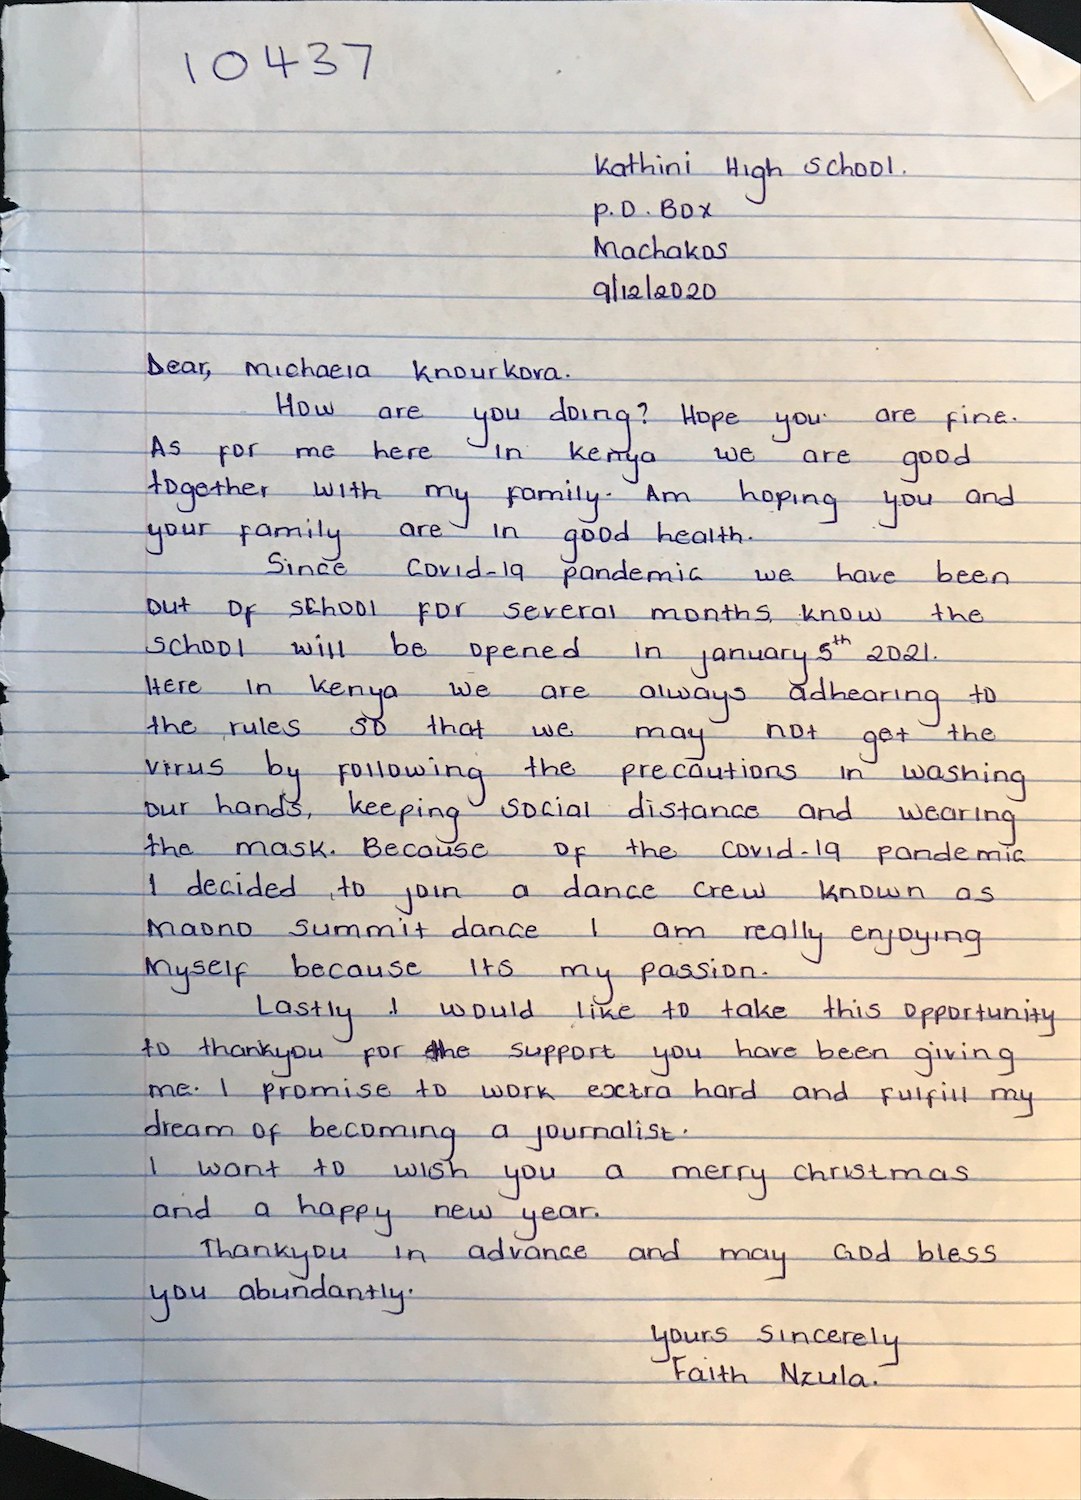 10437
Kathini High School.
P.O. Box
Machakos
9/12/2020
Dear, Michaela Knourkova.
How are you doing? Hope you are fine.
As for me here in Kenya we are good
together with my family. Am hoping you and
your family are in good health.
Since Covid-19 pandemic we have been
out of school for several months, know the
school will be opened in january 5th 2021.
Here in Kenya we are always adhearing to
the rules so that we may not get the
virus by following the precautions in washing
our hands, keeping social distance and wearing
the mask. Because of the covid-19 pandemic
I decided to join a dance crew known as
Maono summit dance I am really enjoying
myself because its my passion.
Lastly I would like to take this opportunity
to thankyou for the support you have been giving
me. I promise to work extra hard and fulfill my
dream of becoming a journalist.
I want to wish you a merry christmas
and a happy new year.
Thankyou in advance and may God bless
you abundantly.
yours sincerely
Faith Nzula.